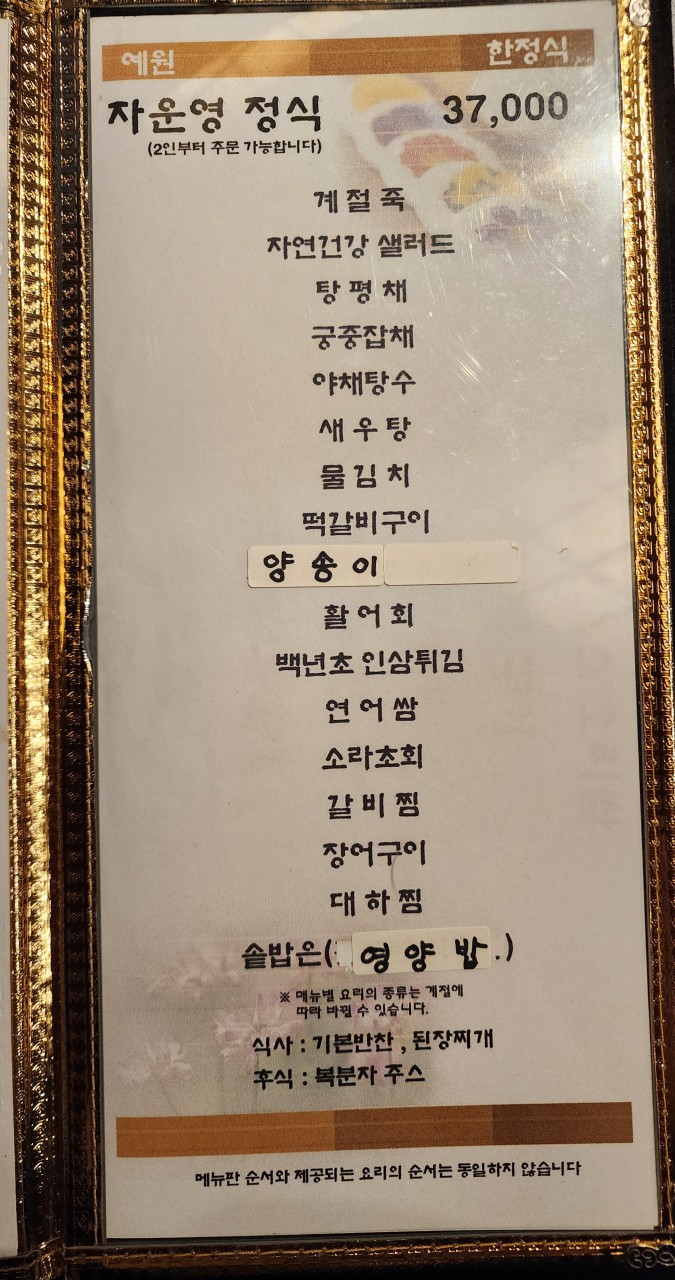 예원 한정식
자운영 정식 37,000
(2인부터 주문 가능합니다)
계절죽
자연건강 샐러드
탕평채
궁중잡채
야채탕수
새우탕
물김치
떡갈비구이
양송이
활어회
백년초 인삼튀김
연어쌈
소라초회
갈비찜
장어구이
대하찜
솥밥은( 영양밥.)
※ 메뉴별 요리의 종류는 계절에
따라 바뀔 수 있습니다.
식사 : 기본반찬 , 된장찌개
후식 : 복분자 주스
메뉴판 순서와 제공되는 요리의 순서는 동일하지 않습니다